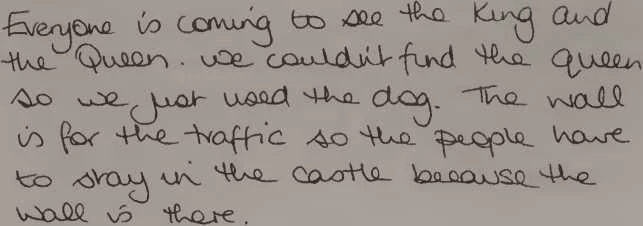 Everyone is coming to see the King and
the Queen. we couldn't find the queen
so we just used the dog. The wall
is for the traffic so the people have
to stay in the castle because the
wall is there.